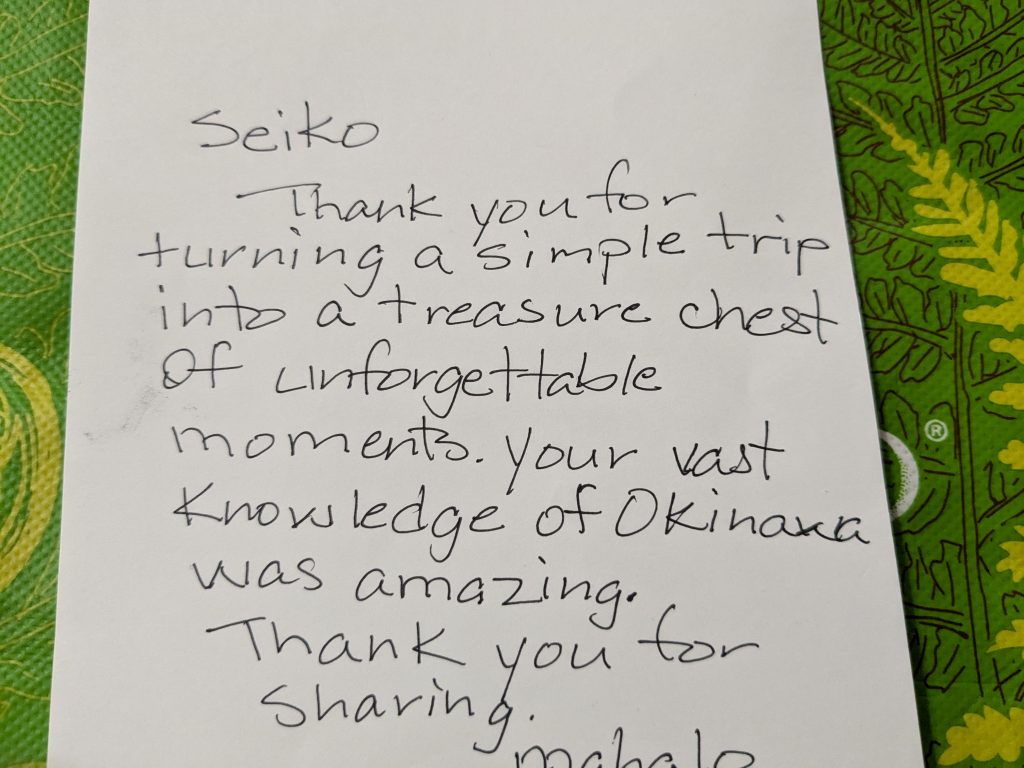 Seiko
Thank you for
turning a simple trip
into a treasure chest
of unforgettable
moments. your vast
Knowledge of Okinawa
was amazing.
Thank you for
sharing.
mahalo
®